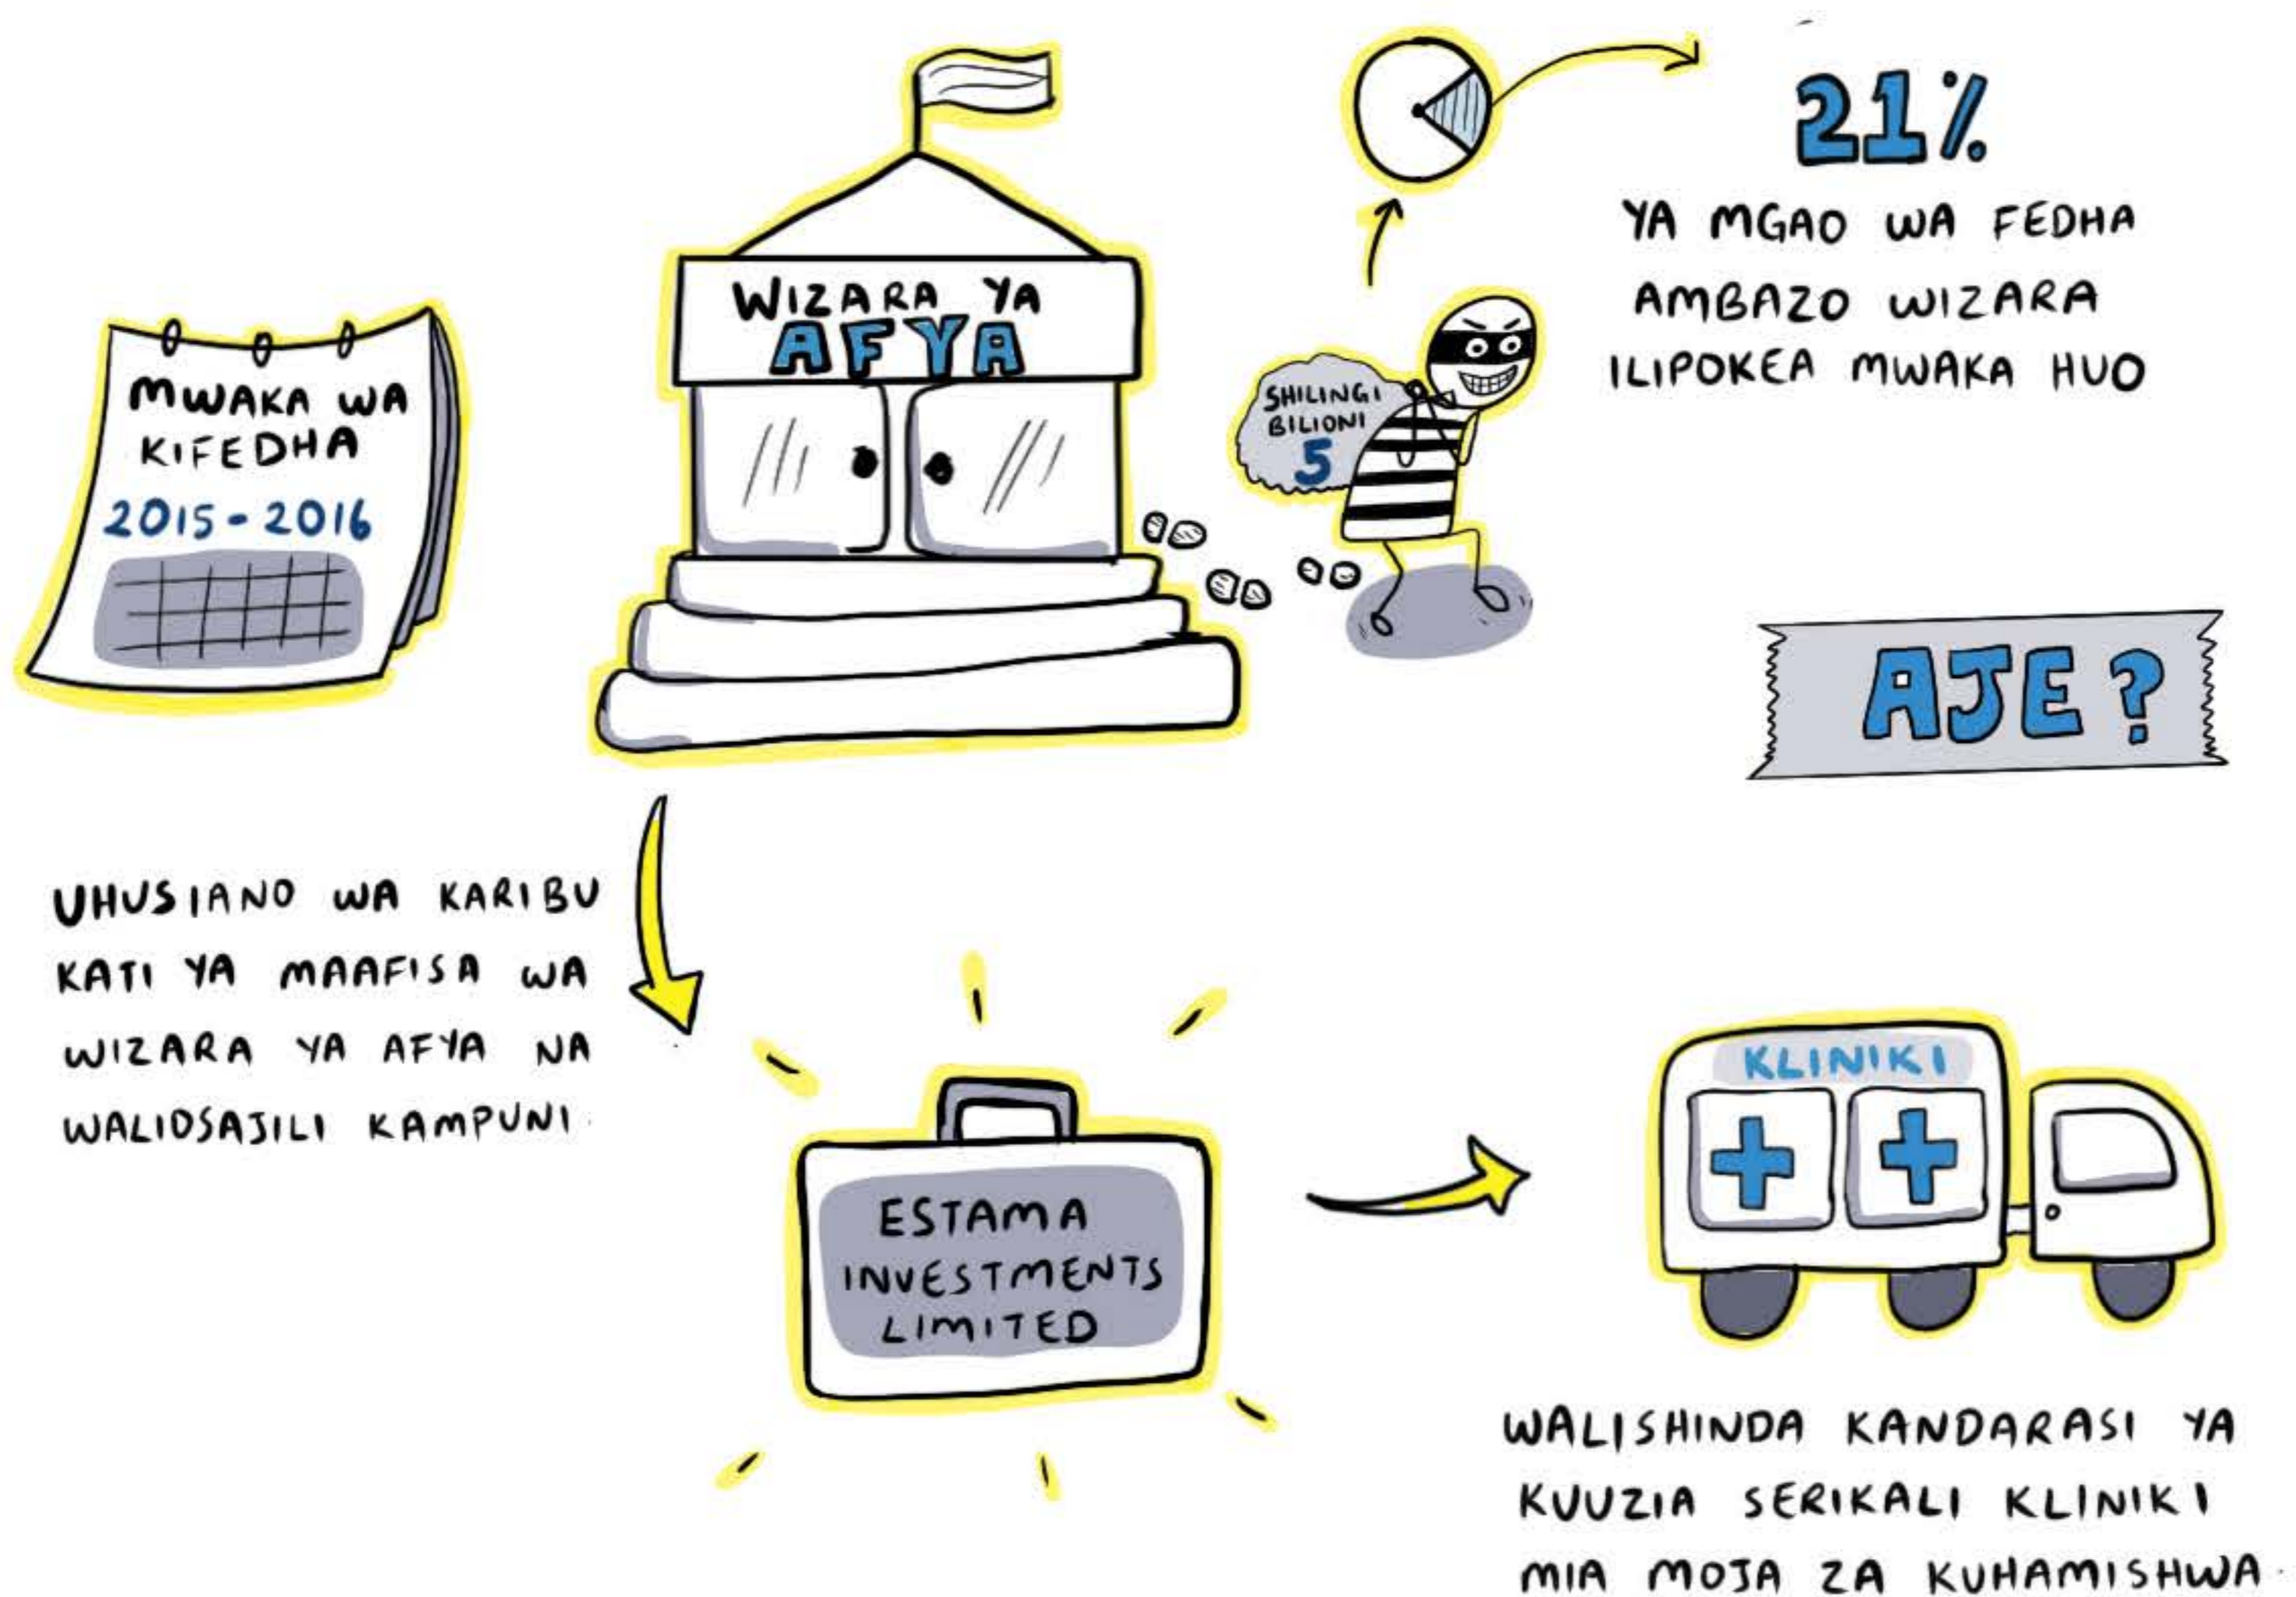 MWAKA WA
KIFEDHA
2015-2016
WIZARA YA
AFYA
SHILINGI
BILIONI
5
21%
YA MGAO WA FEDHA
AMBAZO WIZARA
ILIPOKEA MWAKA HUO
AJE?
UHUSIANO WA KARIBU
KATI YA MAAFISA WA
WIZARA YA AFYA NA
WALIOSAJILI KAMPUNI.
ESTAMA
INVESTMENTS
LIMITED
KLINIKI
WALISHINDA KANDARASI YA
KUUZIA SERIKALI KLINIKI
MIA MOJA ZA KUHAMISHWA.